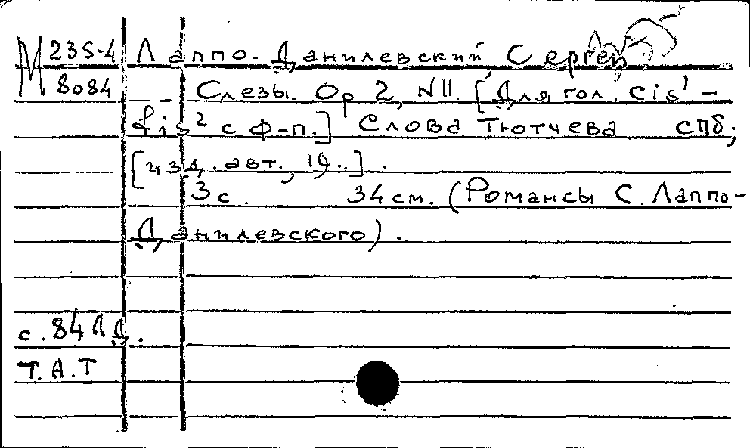 М 235-4 Лаппо-Данилевский Сергей
8084 Слезы. Op 2, №II. [Для гол. cis¹ –
fis² с ф-п.] Слова Тютчева СПб,
[изд. авт., 19..].
3с. 34 см. (Романсы С. Лаппо-
Данилевского).
с. 84 ЛД.
Т.А.Т